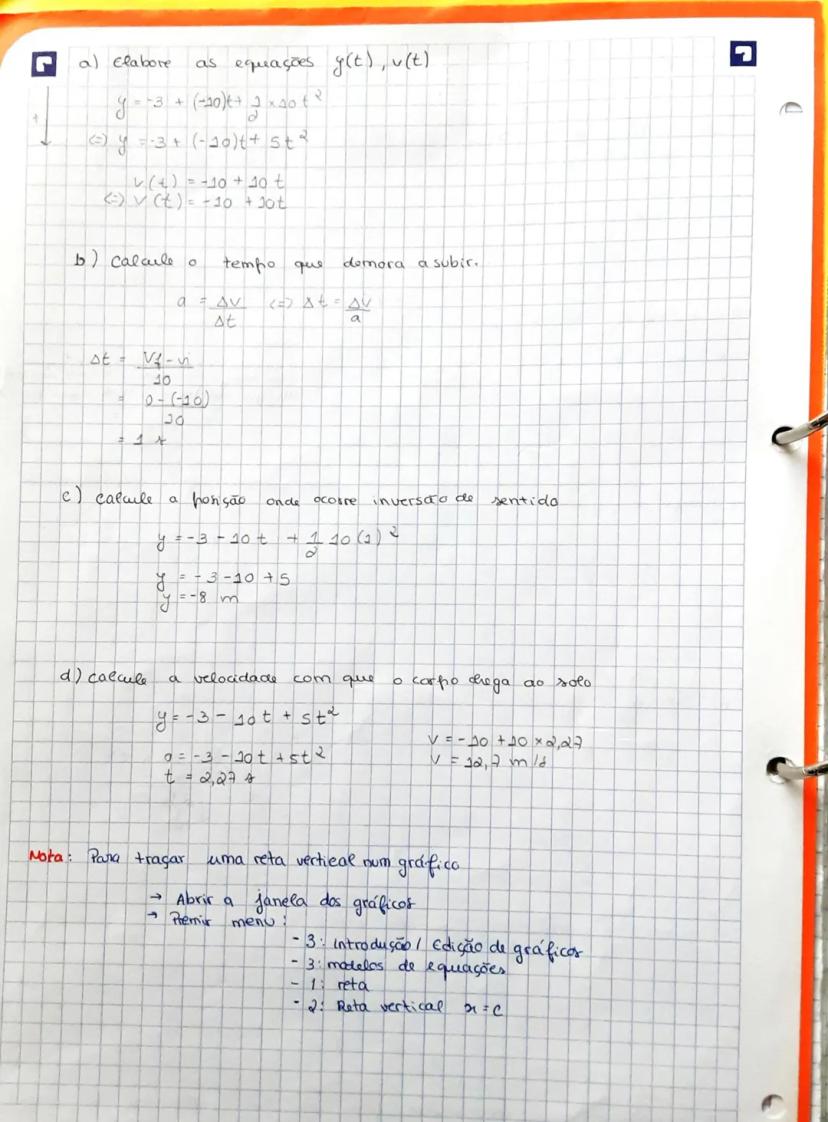 a) Elabore as equações y(t), v(t)
+
y = -3 + (-10)t + 1/2 × 10 t²
(=) y = -3 + (-10)t + 5t²
v(t) = -10 + 10 t
(=) v(t) = -10 + 10t
b) Calcule o tempo que demora a subir.
a = Δv/Δt (=) Δt = Δv/a
Δt = Vf - vi / 10
= 0 - (-10) / 10
= 1 s
c) calcule a posição onde ocorre inversão de sentido
y = -3 - 10 t + 1/2 10 (1)²
y = -3 - 10 + 5
y = -8 m
d) calcule a velocidade com que o corpo chega ao solo
y = -3 - 10t + 5t²
0 = -3 - 10t + 5t²
t = 2,27 s
v = -10 + 10 × 2,27
v = 12,7 m/s
Nota: Para traçar uma reta vertical num gráfico
→ Abrir a janela dos gráficos
→ Premir menu:
- 3: Introdução / Edição de gráficos
- 3: modelos de equações
- 1: reta
- 2: Reta vertical x = c